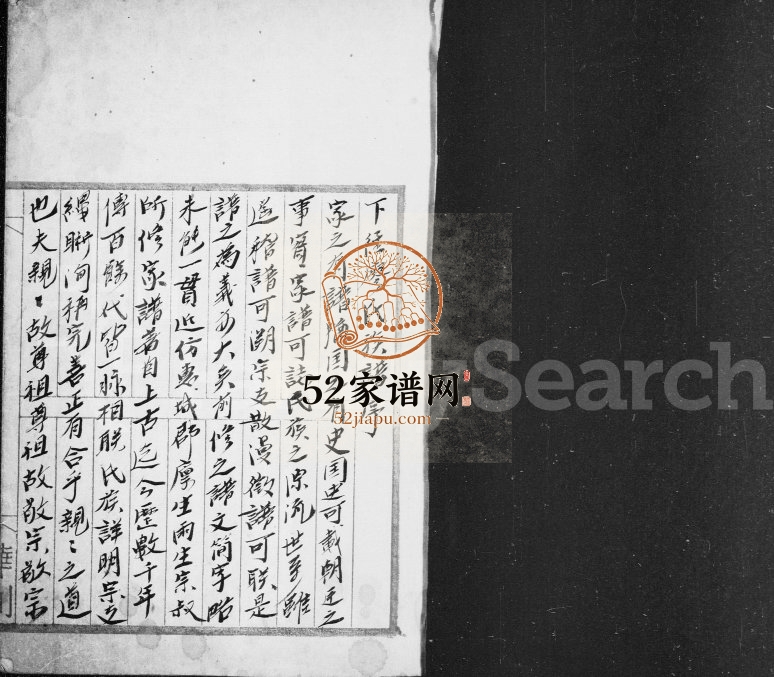 下 氏族譜序
家之有譜猶国有史国史可載朝廷之
事實家譜可誌氏族之源流世系雖
遥稽譜可溯宗支散漫徵譜可联是
譜之為義亦大矣前修之譜文简字略
未能一貫近仿惠城郡廪生雨生宗叔
所修家譜着自上古迄今歷數千年
傳百餘代皆一脉相联氏族詳明宗支
繩聯河稱完善正有合乎親〻之道
也夫親〻故尊祖尊祖故敬宗敬宗
52家谱网
52jiapu.com
Search